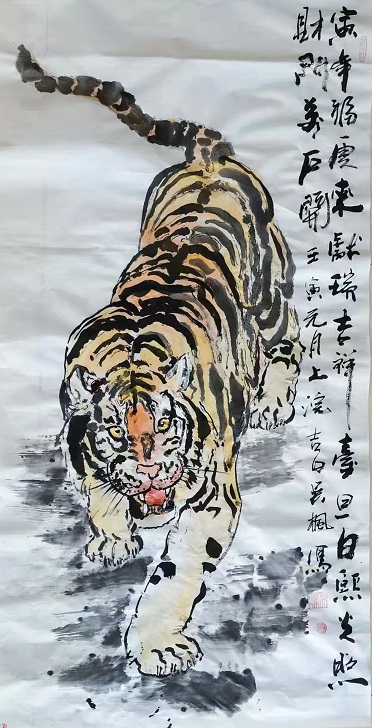 寅年福虎來獻瑞吉祥臺旦日熙光照
財門萬戶開 壬寅元月上浣 吉日吳楓寫